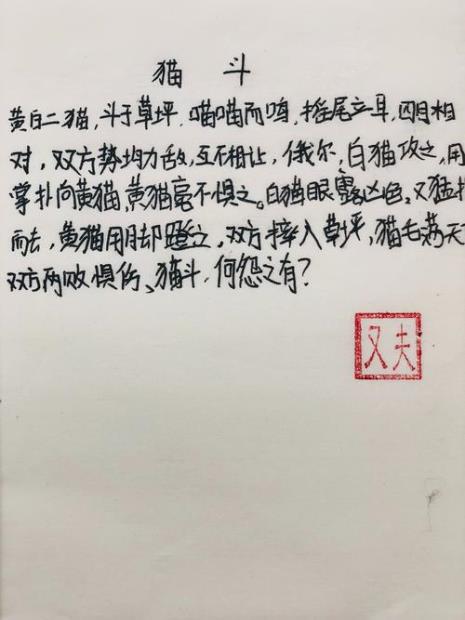 猫 斗
黄白二猫,斗于草坪.喵喵而鸣,摇尾立耳,四目相
对,双方势均力敌,互不相让,俄尔,白猫攻之,用
掌扑向黄猫,黄猫毫不惧之。白猫眼露凶色,又猛扑
而去,黄猫用脚蹬之,双方摔入草坪,猫毛荡天
双方两败惧伤、猫斗,何怨之有?
又夫